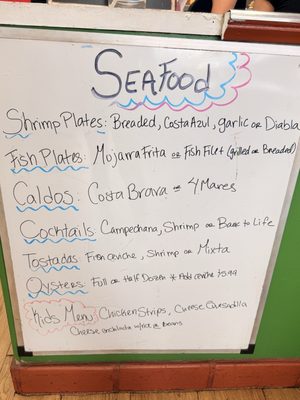 SEAFOOD
Shrimp Plates: Breaded, Costa Azul, garlic or Diabla
Fish Plates: Mojarra Frita or Fish Filet (grilled or Breaded)
Caldos: Costa Brava 4 Mares
Cocktails: Campechana, Shrimp or Back to Life
Tostadas Fish ceviche, Shrimp or Mixta
Oysters: Full or Half Dozen * Add ceviche
Kids Menu: Chicken Strips, Cheese Quesadilla
Cheese enchilada w/rice beans